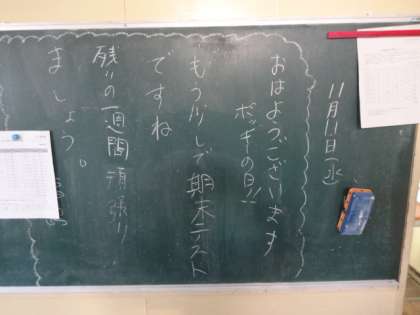 11月11日(水)
おはようございます
ポッキーの日!!
もう少しで期末テスト
ですね
残りの一週間頑張り
ましょう。